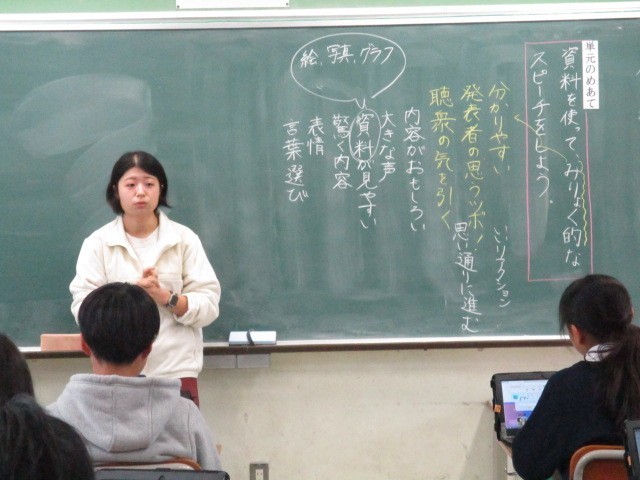 単元のめあて
資料を使って、みりょく的な
スピーチをしよう。
分かりやすい
いいリアクション
発表者の思うツボ！
思い通りに進む
聴衆の気を引く
内容がおもしろい
大きな声
資料が見やすい
驚く内容
表情
言葉選び
絵、写真、グラフ